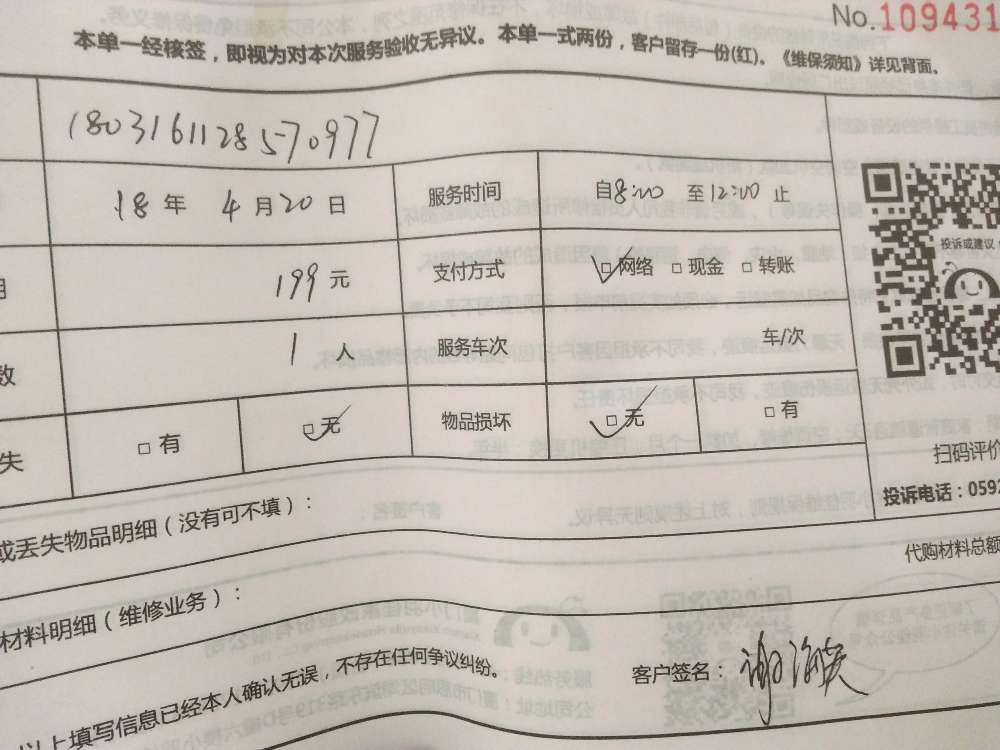 No.109431
本单一经核签，即视为对本次服务验收无异议。本单一式两份，客户留存一份(红)。《维保须知》详见背面。
1803161128570977
18年 4月20日 服务时间 自8:00 至12:00 止
199元 支付方式 □网络 □现金 □转账
投诉或建议
数 1 人 服务车次 车/次
失 □有 □无 物品损坏 □无 □有
扫码评价
投诉电话：0592
或丢失物品明细（没有可不填）：
代购材料总额
材料明细（维修业务）：
客户签名：
以上填写信息已经本人确认无误，不存在任何争议纠纷。